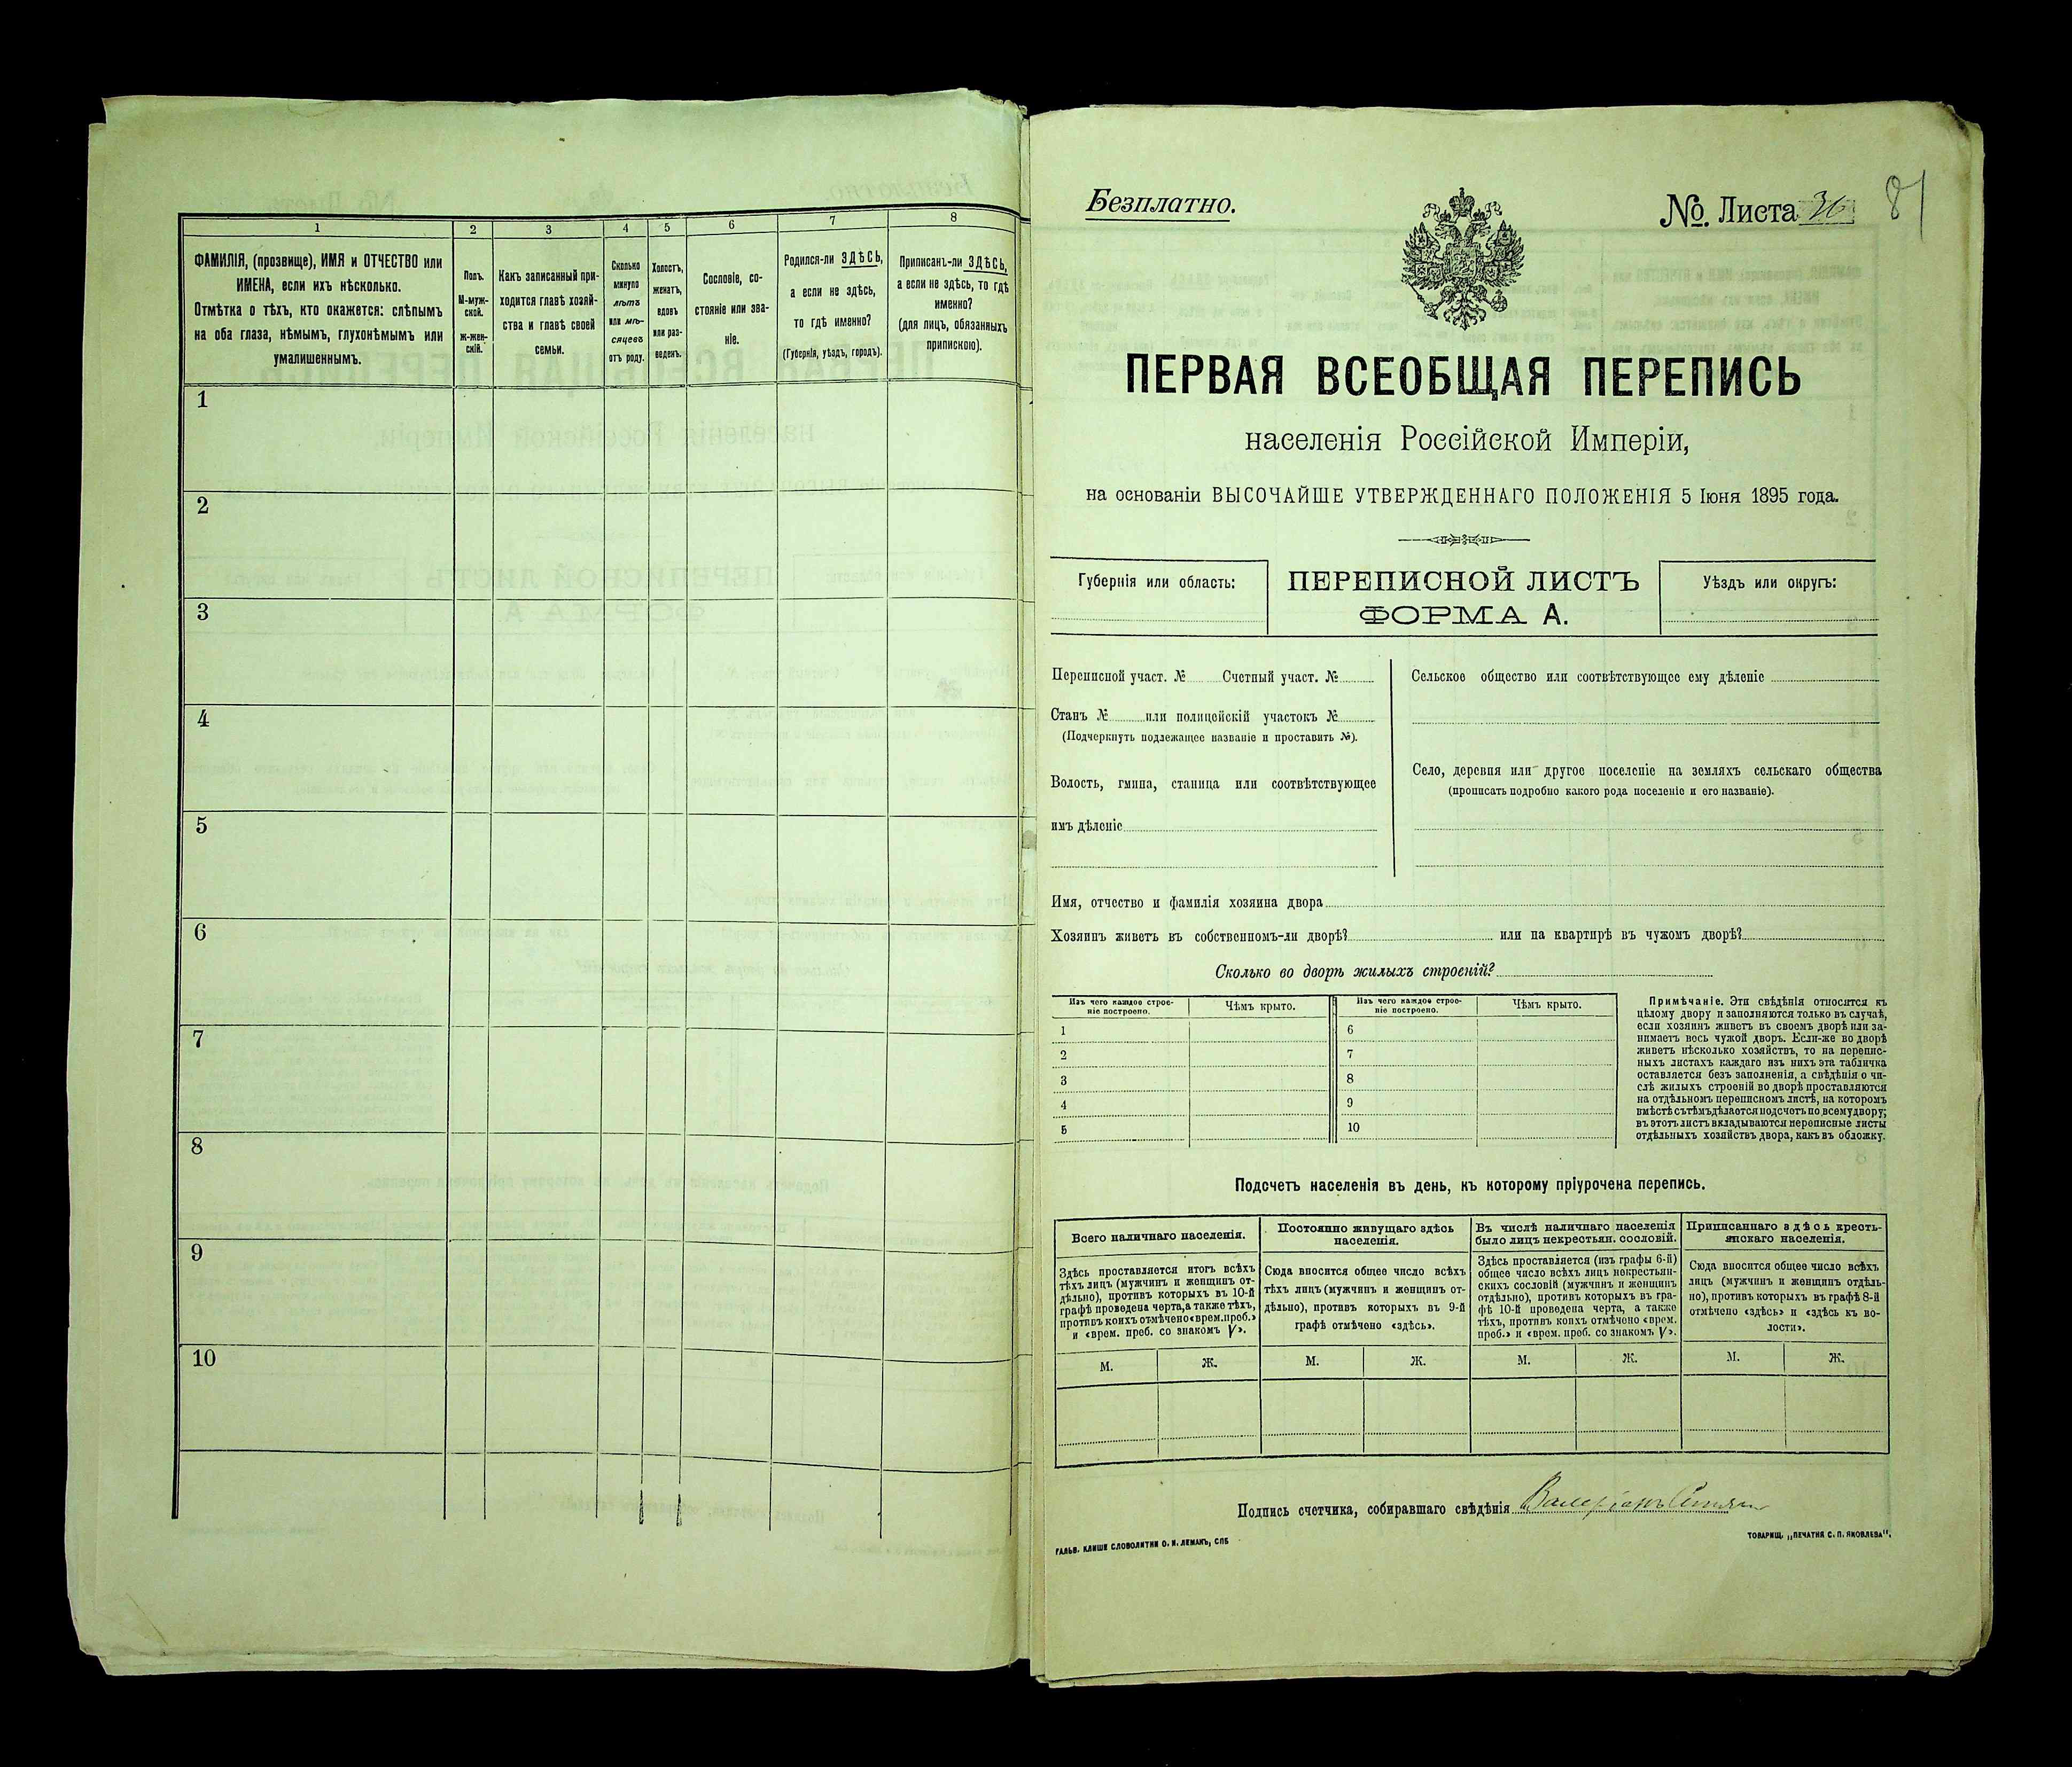 1
2
3
4
5
6
7
8
ФАМИЛІЯ, (прозвище), ИМЯ и ОТЧЕСТВО или
ИМЕНА, если ихъ нѣсколько.
Отмѣтка о тѣхъ, кто окажется: слѣпымъ
на оба глаза, нѣмымъ, глухонѣмымъ или
умалишеннымъ.
Полъ.
М-муж-
ской.
ж-жен-
скій.
Какъ записанный при-
ходится главѣ хозяй-
ства и главѣ своей
семьи.
Сколько
минуло
лѣтъ
или мѣ-
сяцевъ
отъ роду.
Холостъ,
женатъ,
вдовъ
или раз-
веденъ.
Сословіе, со-
стояніе или зва-
ніе.
Родился-ли ЗДѢСЬ,
а если не здѣсь,
то гдѣ именно?
(Губернія, уѣздъ, городъ).
Приписанъ-ли ЗДѢСЬ,
а если не здѣсь, то гдѣ
именно?
(для лицъ, обязанныхъ
припискою).
1
2
3
4
5
6
7
8
9
10
Безплатно.
№. Листа 36
81
ПЕРВАЯ ВСЕОБЩАЯ ПЕРЕПИСЬ
населенія Россійской Имперіи,
на основаніи ВЫСОЧАЙШЕ УТВЕРЖДЕННАГО ПОЛОЖЕНІЯ 5 Іюня 1895 года.
Губернія или область:
ПЕРЕПИСНОЙ ЛИСТЪ
ФОРМА А.
Уѣздъ или округъ:
Переписной участ. № Счетный участ. №
Станъ № или полицейскій участокъ №
(Подчеркнуть подлежащее названіе и проставить №).
Волость, гмина, станица или соотвѣтствующее
имъ дѣленіе
Сельское общество или соотвѣтствующее ему дѣленіе
Село, деревня или другое поселеніе на земляхъ сельскаго общества
(прописать подробно какого рода поселеніе и его названіе).
Имя, отчество и фамилія хозяина двора
Хозяинъ живетъ въ собственномъ-ли дворѣ? или на квартирѣ въ чужомъ дворѣ?
Сколько во дворѣ жилыхъ строеній?
Изъ чего каждое строе-
ніе построено.
Чѣмъ крыто.
Изъ чего каждое строе-
ніе построено.
Чѣмъ крыто.
1
2
3
4
5
6
7
8
9
10
Примѣчаніе. Эти свѣдѣнія относятся къ
цѣлому двору и заполняются только въ случаѣ,
если хозяинъ живетъ въ своемъ дворѣ или за-
нимаетъ весь чужой дворъ. Если-же во дворѣ
живетъ нѣсколько хозяйствъ, то на перепис-
ныхъ листахъ каждаго изъ нихъ эта табличка
оставляется безъ заполненія, а свѣдѣнія о чи-
слѣ жилыхъ строеній во дворѣ проставляются
на отдѣльномъ переписномъ листѣ, на которомъ
вмѣстѣ съ тѣмъ дѣлается подсчетъ по всему двору;
въ этотъ листъ вкладываются переписные листы
отдѣльныхъ хозяйствъ двора, какъ въ обложку.
Подсчетъ населенія въ день, къ которому пріурочена перепись.
Всего наличнаго населенія.
Здѣсь проставляется итогъ всѣхъ
тѣхъ лицъ (мужчинъ и женщинъ от-
дѣльно), противъ которыхъ въ 10-й
графѣ проведена черта, а также тѣхъ,
противъ коихъ отмѣчено «врем. преб.»
и «врем. преб. со знакомъ V».
Постоянно живущаго здѣсь
населенія.
Сюда вносится общее число всѣхъ
тѣхъ лицъ (мужчинъ и женщинъ от-
дѣльно), противъ которыхъ въ 9-й
графѣ отмѣчено «здѣсь».
Въ числѣ наличнаго населенія
было лицъ некрестьян. сословій.
Здѣсь проставляется (изъ графы 6-й)
общее число всѣхъ лицъ некрестьян-
скихъ сословій (мужчинъ и женщинъ
отдѣльно), противъ которыхъ въ гра-
фѣ 10-й проведена черта, а также
тѣхъ, противъ коихъ отмѣчено «врем.
преб.» и «врем. преб. со знакомъ V».
Приписаннаго здѣсь кресть-
янскаго населенія.
Сюда вносится общее число всѣхъ
лицъ (мужчинъ и женщинъ отдѣль-
но), противъ которыхъ въ графѣ 8-й
отмѣчено «здѣсь» и «здѣсь къ во-
лости».
М. Ж. М. Ж. М. Ж. М. Ж.
Подпись счетчика, собиравшаго свѣдѣнія Валеріанъ
ГАЛЬВ. КЛИШЕ СЛОВОЛИТНИ О. И. ЛЕМАНЪ, СПБ
ТОВАРИЩ. „ПЕЧАТНЯ С. П. ЯКОВЛЕВА“.